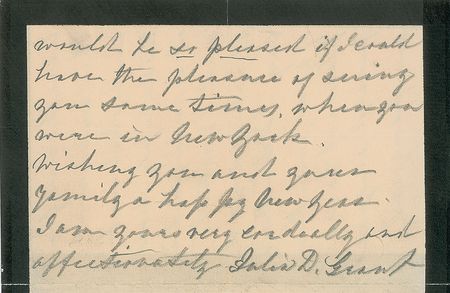 would be so pleased if I could
have the pleasure of seeing
you some times, when you
were in New York.
Wishing you and yours
family a happy New Year.
I am yours very cordially and
affectionately Julia D. Grant